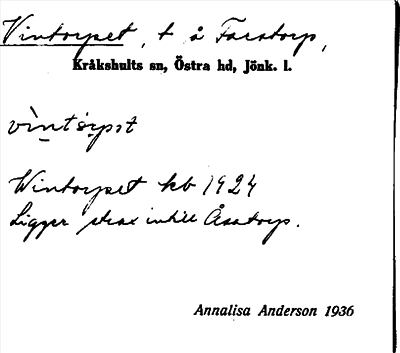 Vintorpet, t. å Åsatorp,
Kråkshults sn, Östra hd, Jönk. l.
Wintorpet kb 1924
Ligger strax intill Åsatorp.
Annalisa Anderson 1936